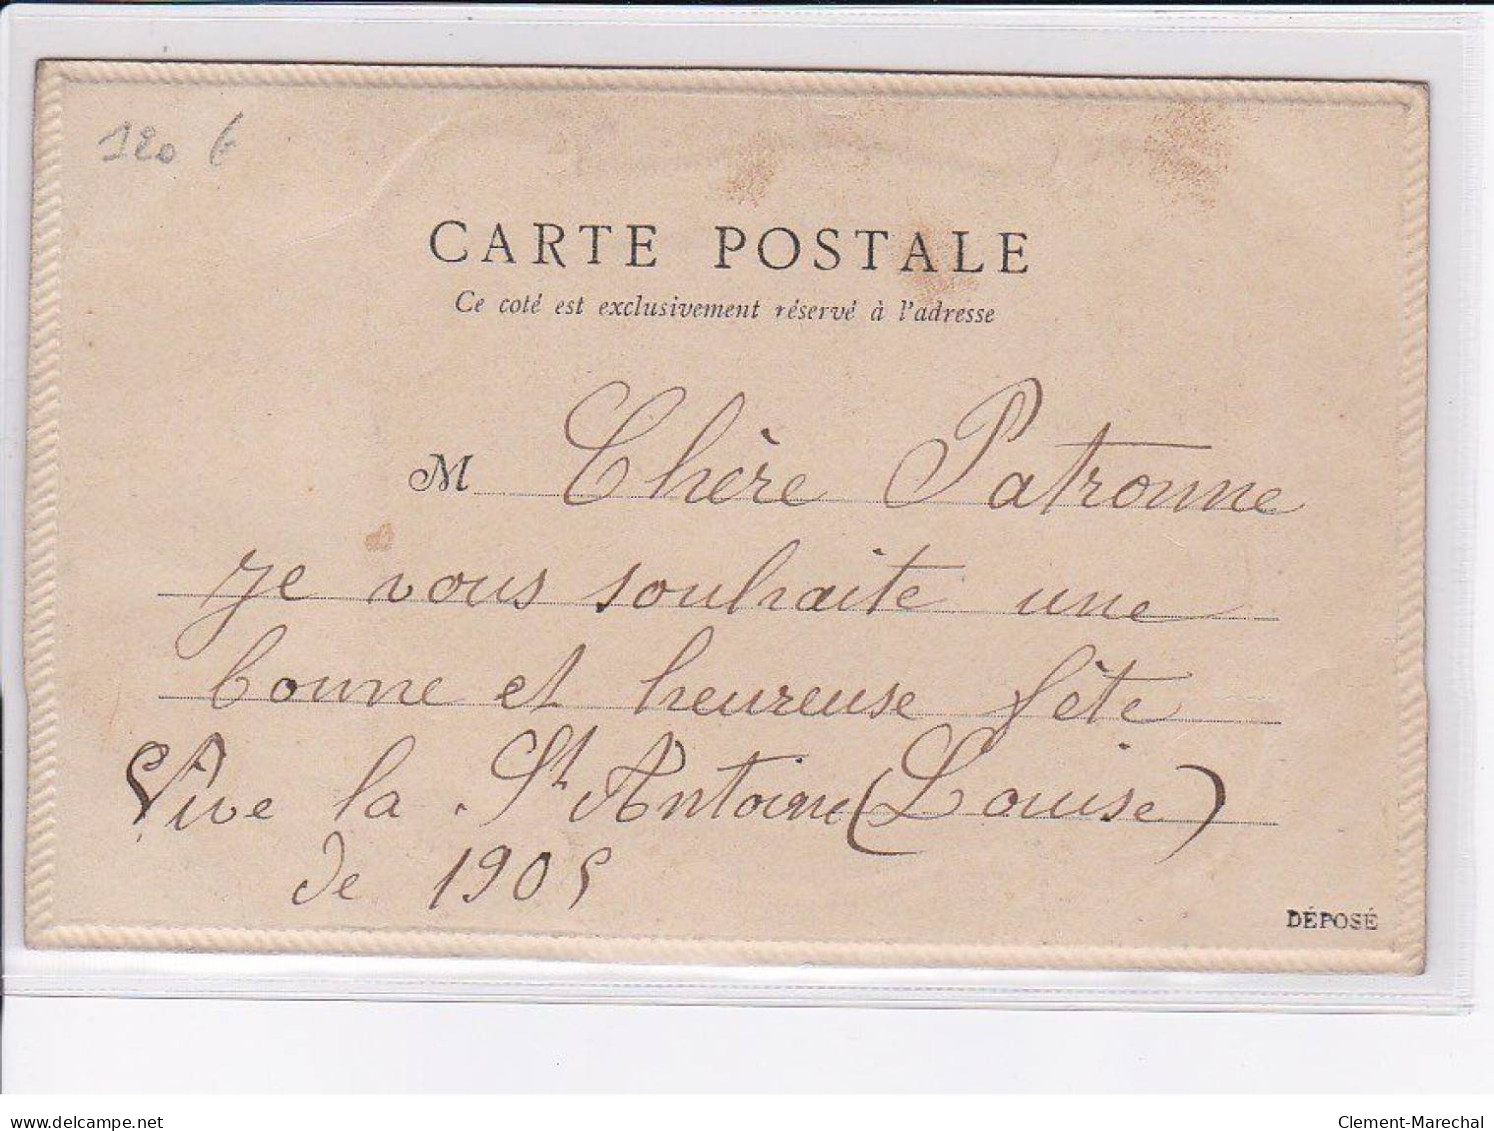 120 €
CARTE POSTALE
Ce coté est exclusivement réservé à l'adresse
M Chère Patronne
je vous souhaite une
bonne et heureuse fête
Vive la St Antoine (Louise)
de 1905
DÉPOSÉ
delcampe.net
Clement-Marechal